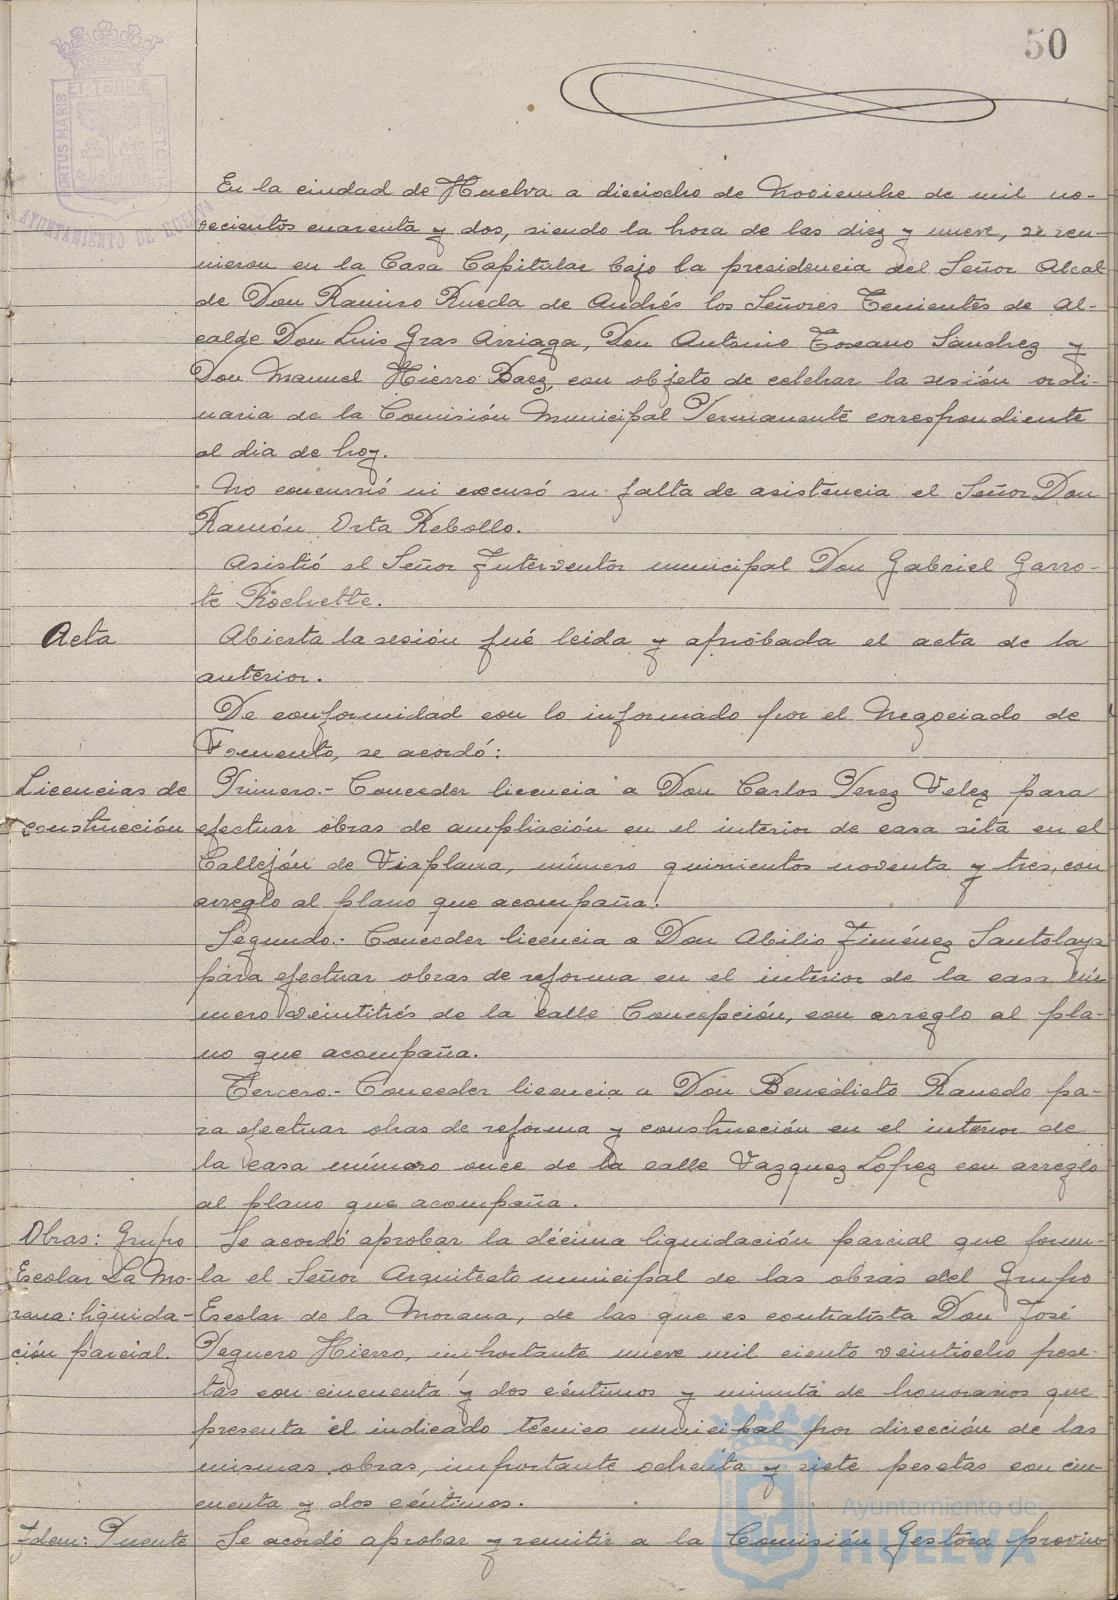 50
PORTUS MARIS ET TERRÆ CUSTODIA
AYUNTAMIENTO DE HUELVA
En la ciudad de Huelva a dieciocho de Noviembre de mil no-
vecientos cuarenta y dos, siendo la hora de las diez y nueve, se reu-
nieron en la Casa Capitular bajo la presidencia del Señor Alcal
de Don Ramiro Rueda de Andrés los Señores Tenientes de Al-
calde Don Luis Gras Arriaga, Don Antonio Toscano Sánchez y
Don Manuel Hierro Baez, con objeto de celebrar la sesión ordi-
naria de la Comisión Municipal Permanente correspondiente
al dia de hoy.
No concurrió ni excusó su falta de asistencia el Señor Don
Ramón Orta Rebollo.
Asistió el Señor Interventor municipal Don Gabriel Garro-
te Rochette.
Acta
Abierta la sesión fué leida y aprobada el acta de la
anterior.
De conformidad con lo informado por el Negociado de
Fomento, se acordó:
Licencias de
construcción
Primero.- Conceder licencia a Don Carlos Perez Velez para
efectuar obras de ampliación en el interior de casa sita en el
Callejón de Viaplana, número quinientos noventa y tres, con
arreglo al plano que acompaña.
Segundo.- Conceder licencia a Don Abilio Jiménez Santolaya
para efectuar obras de reforma en el interior de la casa nú
mero veintitrés de la calle Concepción, con arreglo al pla-
no que acompaña.
Tercero.- Conceder licencia a Don Benedicto Ranedo pa-
ra efectuar obras de reforma y construcción en el interior de
la casa número once de la calle Vazquez Lopez con arreglo
al plano que acompaña.
Obras: Grupo
Escolar La Mo-
rana: liquida-
ción parcial.
Se acordó aprobar la décima liquidación parcial que formu-
la el Señor Arquitecto municipal de las obras del Grupo
Escolar de la Morana, de las que es contratista Don José
Peguero Hierro, importante nueve mil ciento veintiocho pese-
tas con cincuenta y dos céntimos y minuta de honorarios que
presenta el indicado técnico municipal por dirección de las
mismas obras, importante ochenta y siete pesetas con cin-
cuenta y dos céntimos.
Idem: Puente
Se acordó aprobar y remitir a la Comisión Gestora provin
Ayuntamiento de
HUELVA